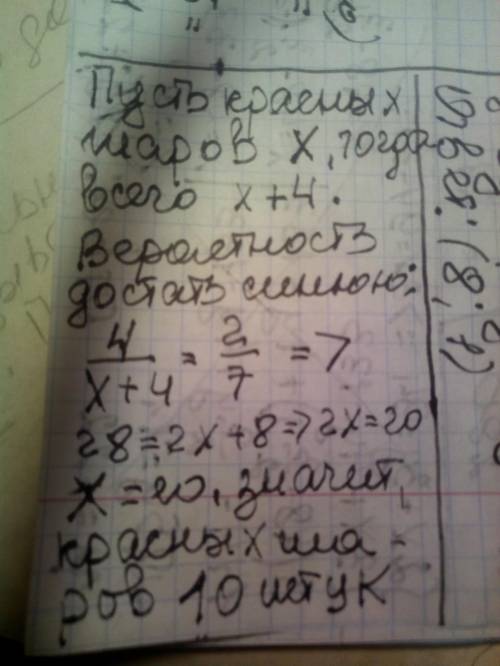 Пусть красных
шаров X, тогда
всего x+4.
Вероятность
достать синюю:
4/(x+4) = 2/7 =>
28=2x+8=>2x=20
X=20, значит,
красных ша-
ров 10 штук